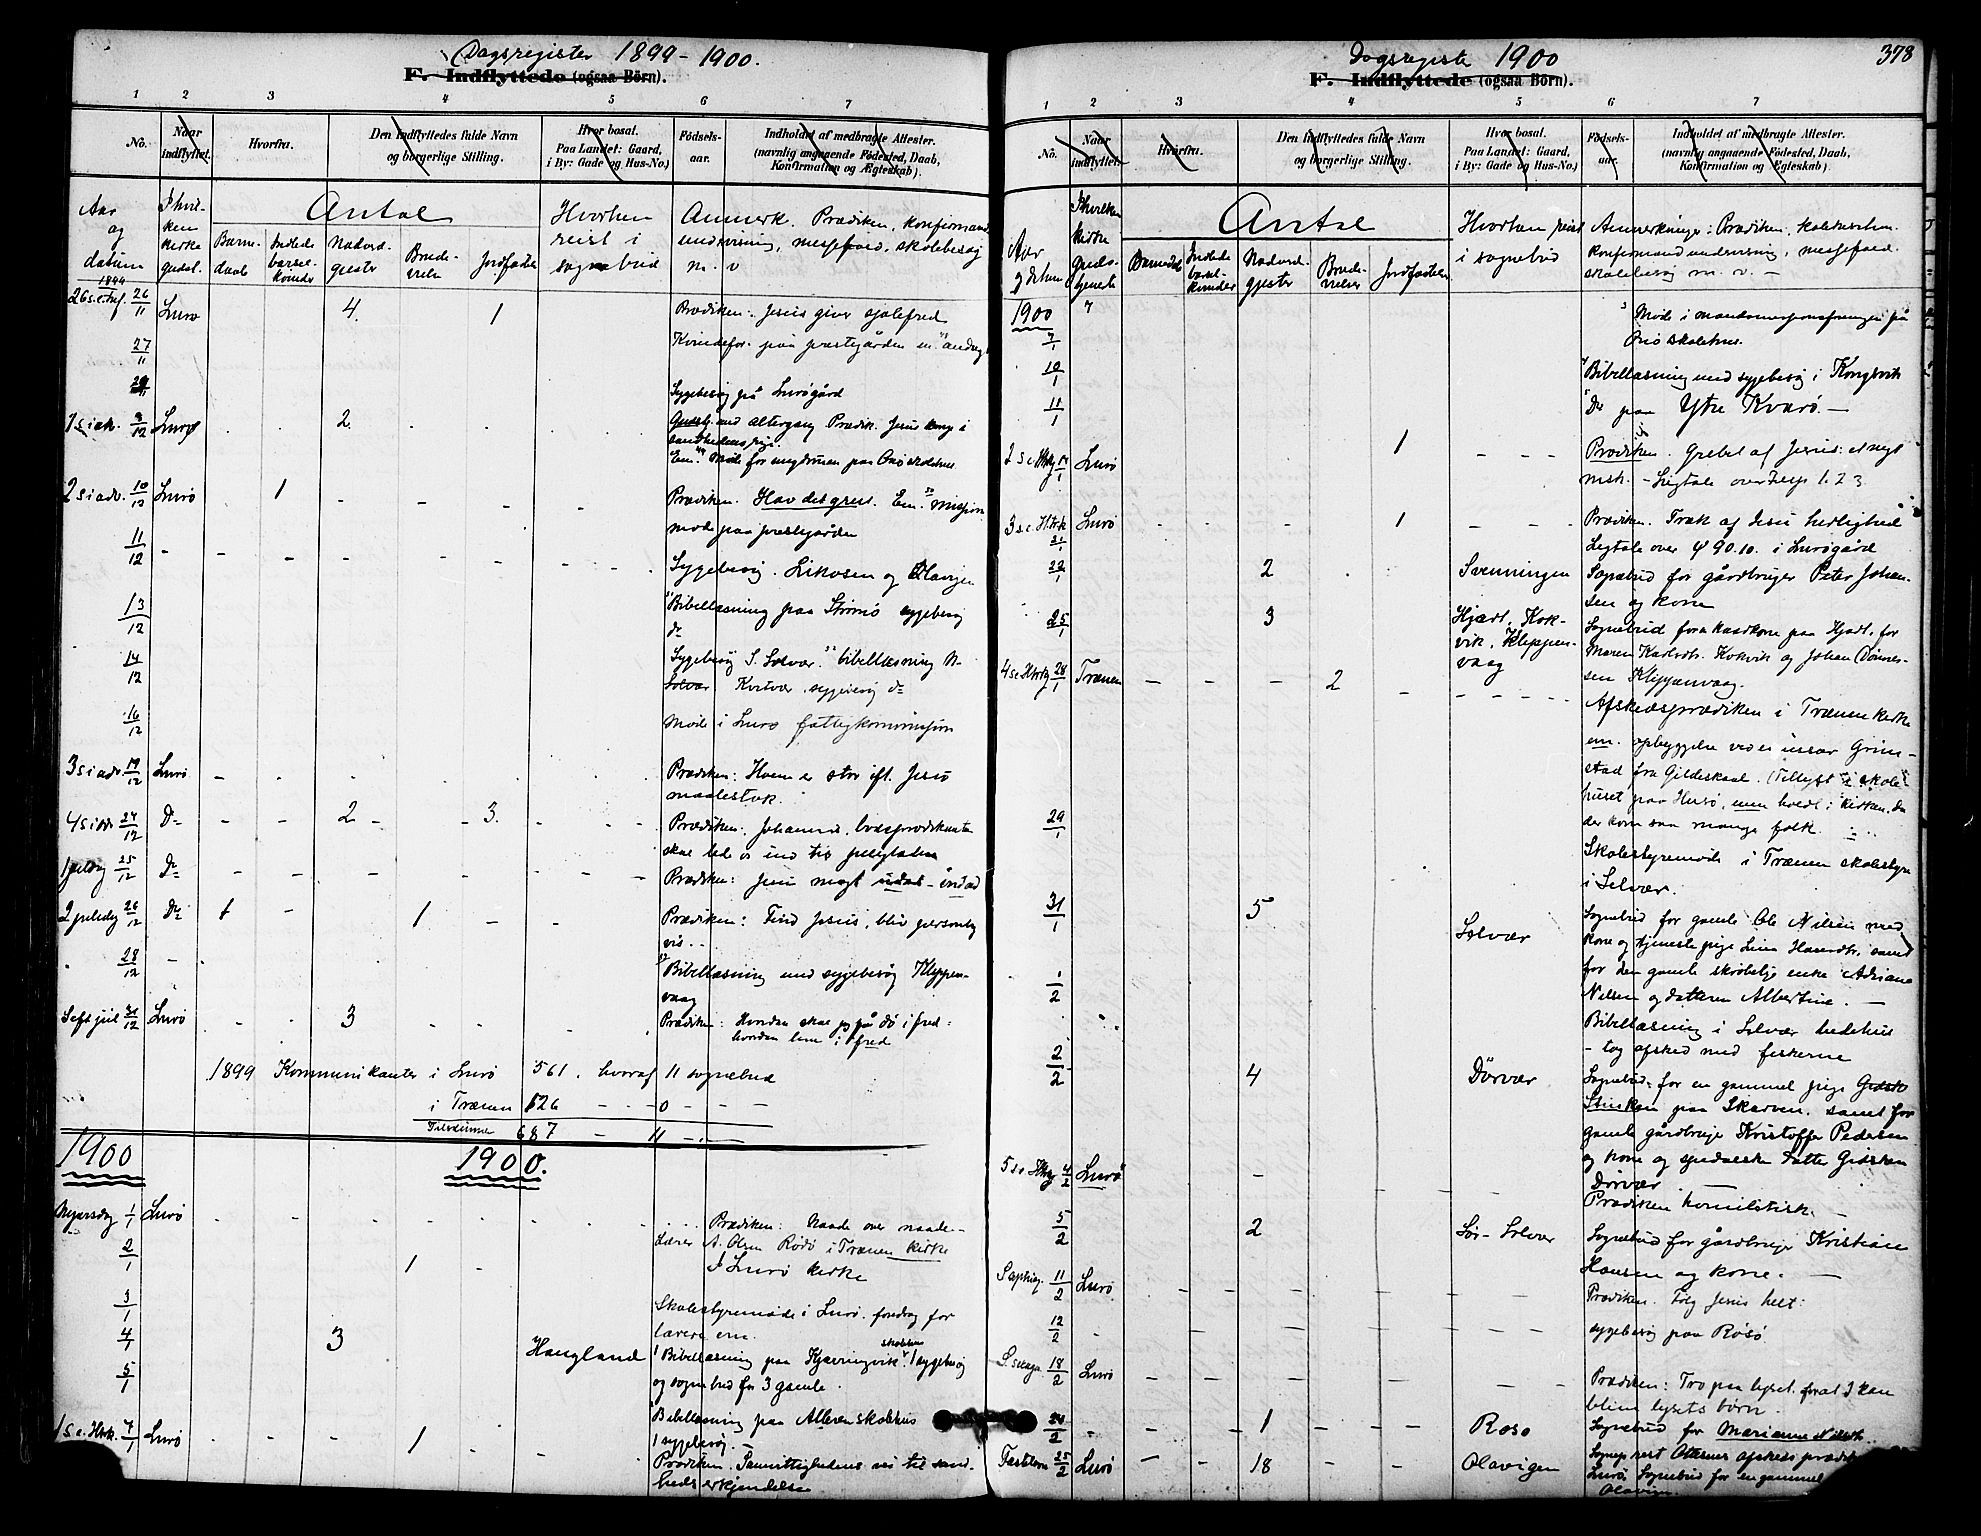 Dagsregister 1899-1900.
F. Indflyttede (ogsaa Börn).
1 2 3 4 5 6 7
No. Naar indflyttet. Hvorfra. Den Indflyttedes fulde Navn og borgerlige Stilling. Hvor bosat. Paa Landet: Gaard, i By: Gade og Hus-No.) Födsels-aar. Indholdet af medbragte Attester. (navnlig angaaende Födested, Daab, Konfirmation og Ægteskab).
Aar og datum
I hvilken kirke gudst.
Antal
Barnedaab Indledte barselkvinder Nadverdgjester Brudevielse Jordfæstelse
Hvorhen reist i sognebud
Anmerk. Prædiken, konfirmand
undervisning, messefald, skolebesøg
m. v
1899
26 s.e. tref. 26/11 Lurø 4. 1 Prædiken: Jesus giver sjælefred
27/11 Kvindefor. paa præstegården
29/11 Sygebesøg på Lurøgård
1 s i adv. 3/12 Lurø 2. Gudstj. med altergang Prædik. Jesus konge i
sandhedens rige.
Em. Møde for ungdommen paa Onø skolehus
2 s i adv. 10/12 Lurø 1 Prædiken. Hav det grus. Em. mission
møde paa præstegården
11/12 Sygebesøg. Likosen og Olavigen
13/12 Bibellæsning paa Stivnsø sygebesøg
do
14/12 Sygebesøg S. Solvær. bibellæsning N.
Solvær Kvitvær, sygebesøg do
16/12 Møde i Lurø fattigkommission
3 s i adv. 17/12 Lurø Prædiken: Hvem er stor eft. Jesu
maalestok.
4 s i adv 24/12 Do 2 3. Prædiken: Johannes, bodsprædikanten
skal lede os ind til juleglæden
1 juledag 25/12 Do Prædiken: Jesu magt udad - indad
2 juledag 26/12 Do 1 1 Prædiken: Find Jesus, bliv personlig
vis.
28/12 Bibellæsning med sygebesøg Kleppen-
vaag
S eft jul 31/12 Lurø 3 Prædiken: Hvordan skal jeg få dø i fred:
hvordan leve i fred
1899 Kommunikanter i Lurø 561, hvoraf 11 sognebud
i Trænen 126 - - - 0 - - -
Tilsammen 687 - 11 - . -
1900 1900.
Nyaarsdag 1/1 Lurø Prædiken: Naade over naade-
Lærer A. Olsen Rødø i Trænen kirke
2/1 1 I Lurø kirke
3/1 Skolestyremøde i Lurø. foredrag for
lærere em.
4/1 3 Haugland Bibellæsning paa Kjærringvik skolehus 1 sygebesøg
og sognebud for 3 gamle.
5/1 Bibellæsning paa Alderen skolehus
1 sygebesøg.
1 s.e. Htrk. 7/1 Lurø 1 Prædiken. Samvittighedens vei til sand-
heds erkjendelse
Dagsregister 1900
378
F. Indflyttede (ogsaa Börn).
1 2 3 4 5 6 7
No. Naar indflyttet. Hvorfra. Den Indflyttedes fulde Navn og borgerlige Stilling. Hvor bosat. Paa Landet: Gaard, i By: Gade og Hus-No.) Födsels-aar. Indholdet af medbragte Attester. (navnlig angaaende Födested, Daab, Konfirmation og Ægteskab).
Aar og datum
I hvilken kirke gudstjeneste
Antal
Barnedaab Indledte barselkvinder Nadverdgjester Brudevielser Jordfæstelser
Hvorhen reist i sognebud
Anmerkninger: Prædiken, skolebesøk
konfirmandundervisning, messefald
skolebesøg m. v. -
1900
7/1 Møde i mandsmissionsforeningen på
Onø skolehus.
10/1 Bibellæsning med sygebesøg i Kongsvik
11/1 Do paa Ytre Kvarø. -
2 s e Htrkg 14/1 Lurø 1 Prædiken. Grebet af Jesus: et nyt
msk. - Ligtale over
3 s.e. Htrk 21/1 Lurø 1 Prædiken. Træk af Jesu herlighed
Ligtale over ψ 90.10. i Lurøgård
22/1 2 Svenningen Sognebud for gårdbruger Peter Johan-
sen og kone
25/1 3 Hjadl. Kok-
vik, Kleppen-
vaag Sognebud for en kårdkone paa Hjadl. for
Maren Karlsdtr. Kokvik og Johan Dønnes-
sen Kleppenvaag.
4 s e Htrkg 28/1 Trænen 2 Afskedsprædiken i Trænen kirke
em. opbyggelse ved emissær Grim-
stad fra Gildeskaal. (Tillyst i skole-
huset paa Husø, men holdt i kirken, da
der kom saa mange folk.
29/1 Skolestyremøde i Trænen skolestyre
i Selvær.
31/1 5 Selvær Sognebud for gamle Ole Nilsen med
kone og tjenestepige Lina Hansdtr. samt
for den gamle skrøbelige enke Adriane
Nilsen og datteren Albertine. -
1/2 Bibellæsning i Selvær bedehus
- tog afsked med fiskerne
2/2 4 Dørvær Sognebud for en gammel pige
paa Skarven. samt for
gamle gårdbruger Kristoffer Pedersen
og kone og spedalske datter Gidsken
Dørvær
5 s e Htrkg 4/2 Lurø Prædiken homiletisk. -
5/2 2 Sør-Solvær Sognebud for gårdbruger Kristian
Hansen og kone. -
S septuag. 11/2 Lurø Prædiken. Følg Jesus helt:
12/2 sygebesøg paa Røsø
S. sexag. 18/2 Lurø Prædiken: Tro paa lyset, forat I kan
blive lysets børn.
24/2 1 Røsø Sognebud for Marianne Nilsdtr.
Fastelavn 25/2 Lurø 18 Olavigen Sognepræst afskedsprædik
Lurø Sognebud for en gammel
Olavigen.